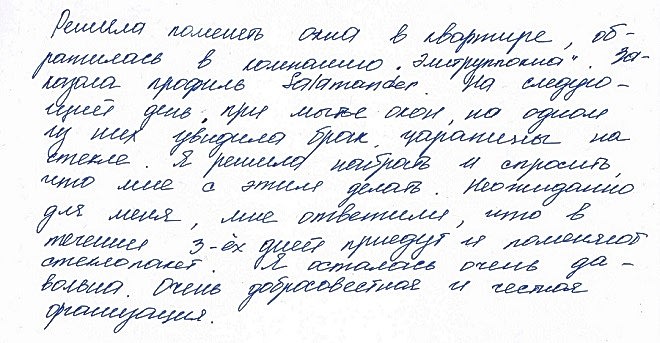 Решила поменять окна в квартире, об-
ратилась в компанию "Элитгруппокна". За-
казала профиль Salamander. На следую-
щий день, при мытье окон, на одном
из них увидила брак, царапины на
стекле. Я решила набрать и спросить,
что мне с этим делать. Неожиданно
для меня, мне ответили, что в
течении 3-ёх дней приедут и поменяют
стеклопакет. Я осталась очень да-
вольна. Очень добросовестная и честная
организация.